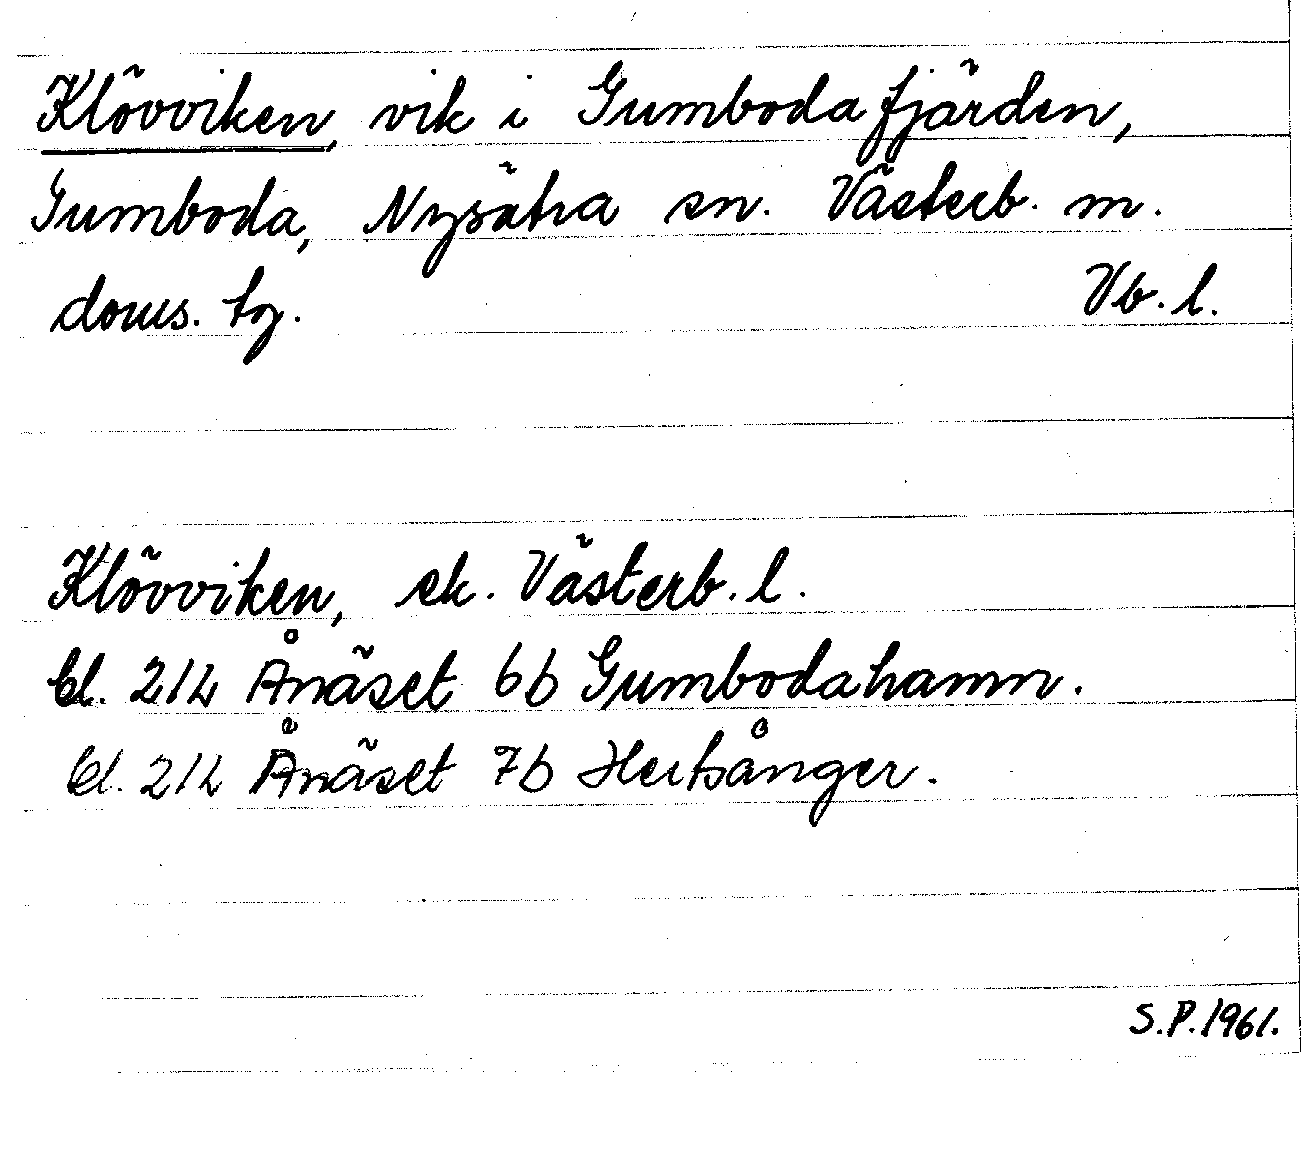 Klövviken, vik i Gumbodafjärden,
Gumboda, Nysätra sn. Västerb. m.
doms. tg. Vb. l.
Klövviken, ek. Västerb. l.
Bl. 21L Ånäset 6b Gumbodahamn.
Bl. 21L Ånäset 7b Hertsånger.
S.P. 1961.